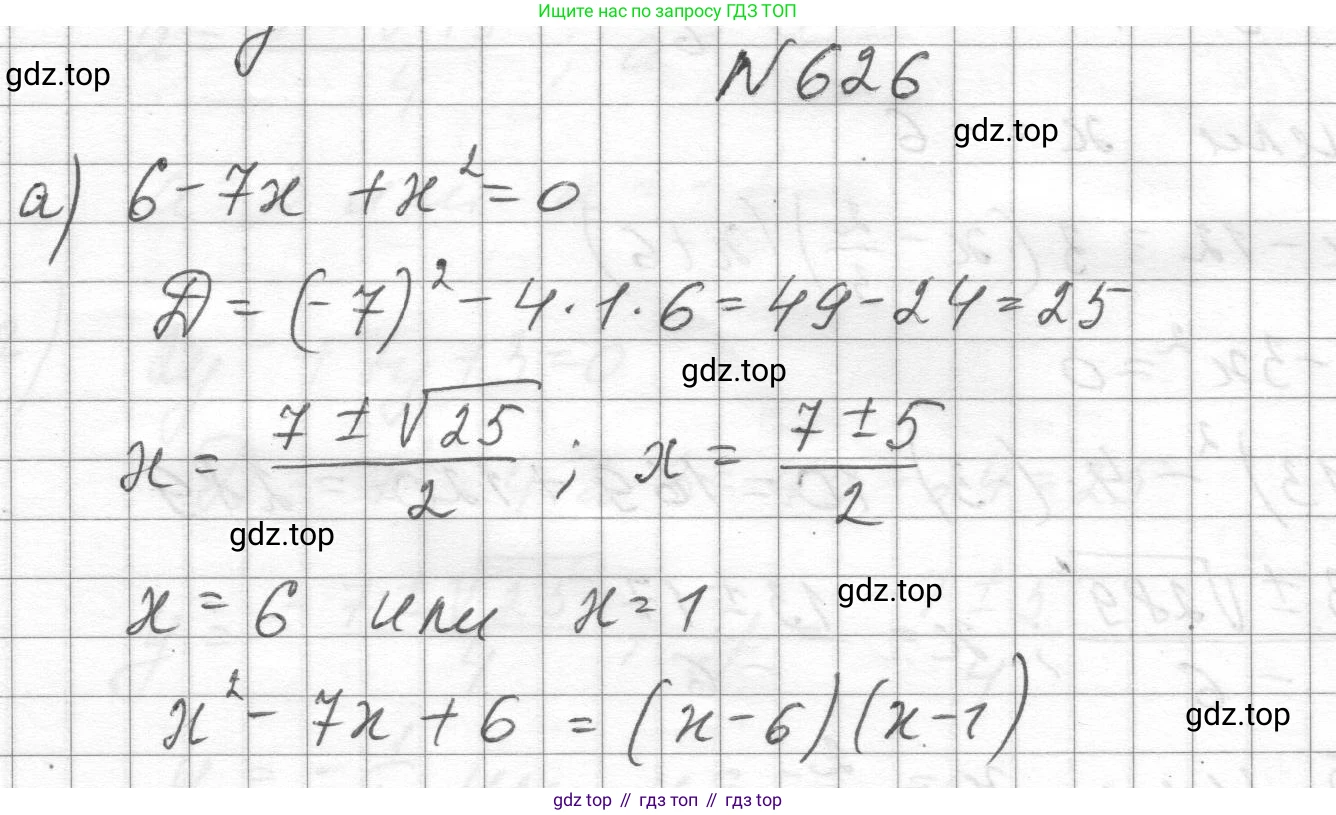 Ищите нас по запросу ГДЗ ТОП
gdz.top
N 626
gdz.top
а) 6 - 7x + x² = 0
D = (-7)² - 4 · 1 · 6 = 49 - 24 = 25
gdz.top
x = (7 ± √25)/2 ; x = (7 ± 5)/2
gdz.top
x = 6 или x = 1
gdz.top
x² - 7x + 6 = (x - 6)(x - 1)
gdz.top
gdz top // гдз топ // гдз top